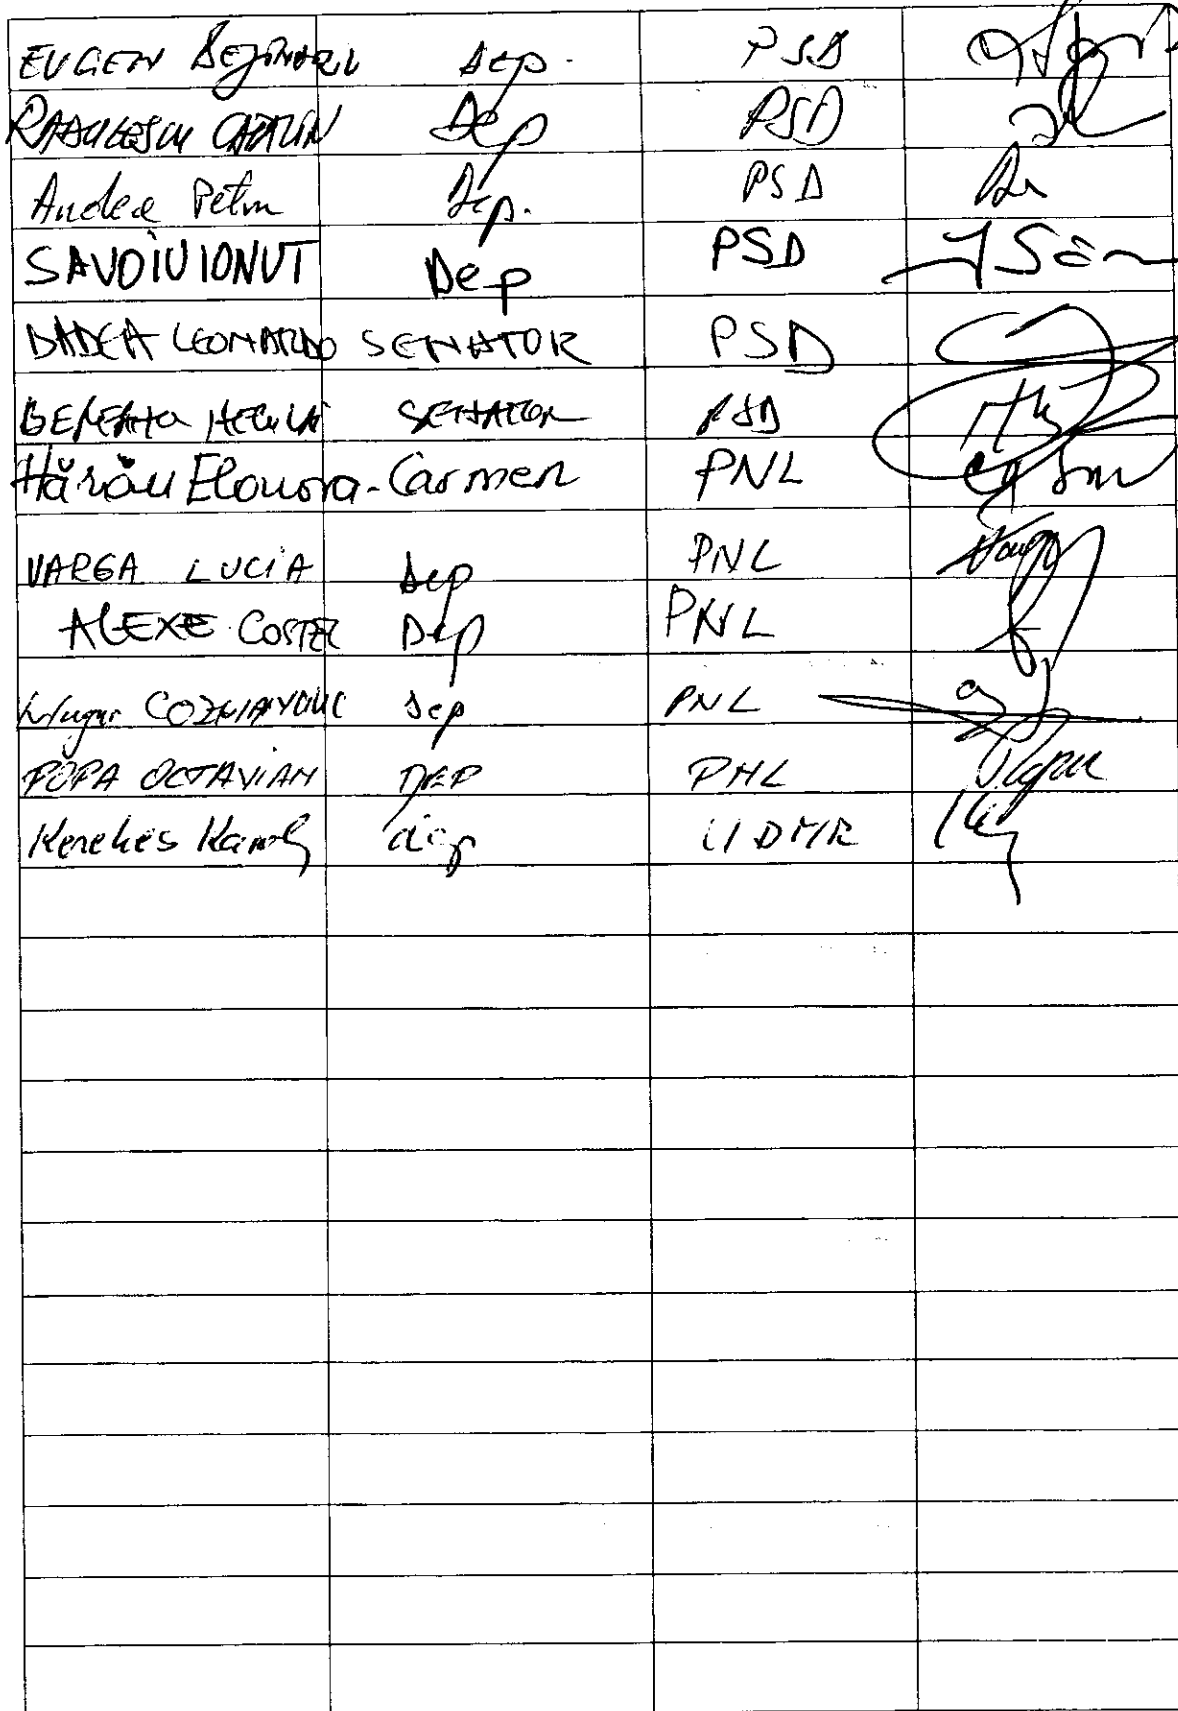 EUGEN BEJINARIU Dep. PSD
RADULESCU CATALIN Dep PSD
Andea Petru Dep. PSD
SAVOIU IONUT Dep PSD
BADEA LEONARDO SENATOR PSD
SENATOR PSD
Hărău Elonora-Carmen PNL
VARGA LUCIA Dep PNL
ALEXE COSTEL Dep PNL
Mugur COZMANCIUC Dep PNL
POPA OCTAVIAN DEP PNL
Kerekes Karoly dep UDMR